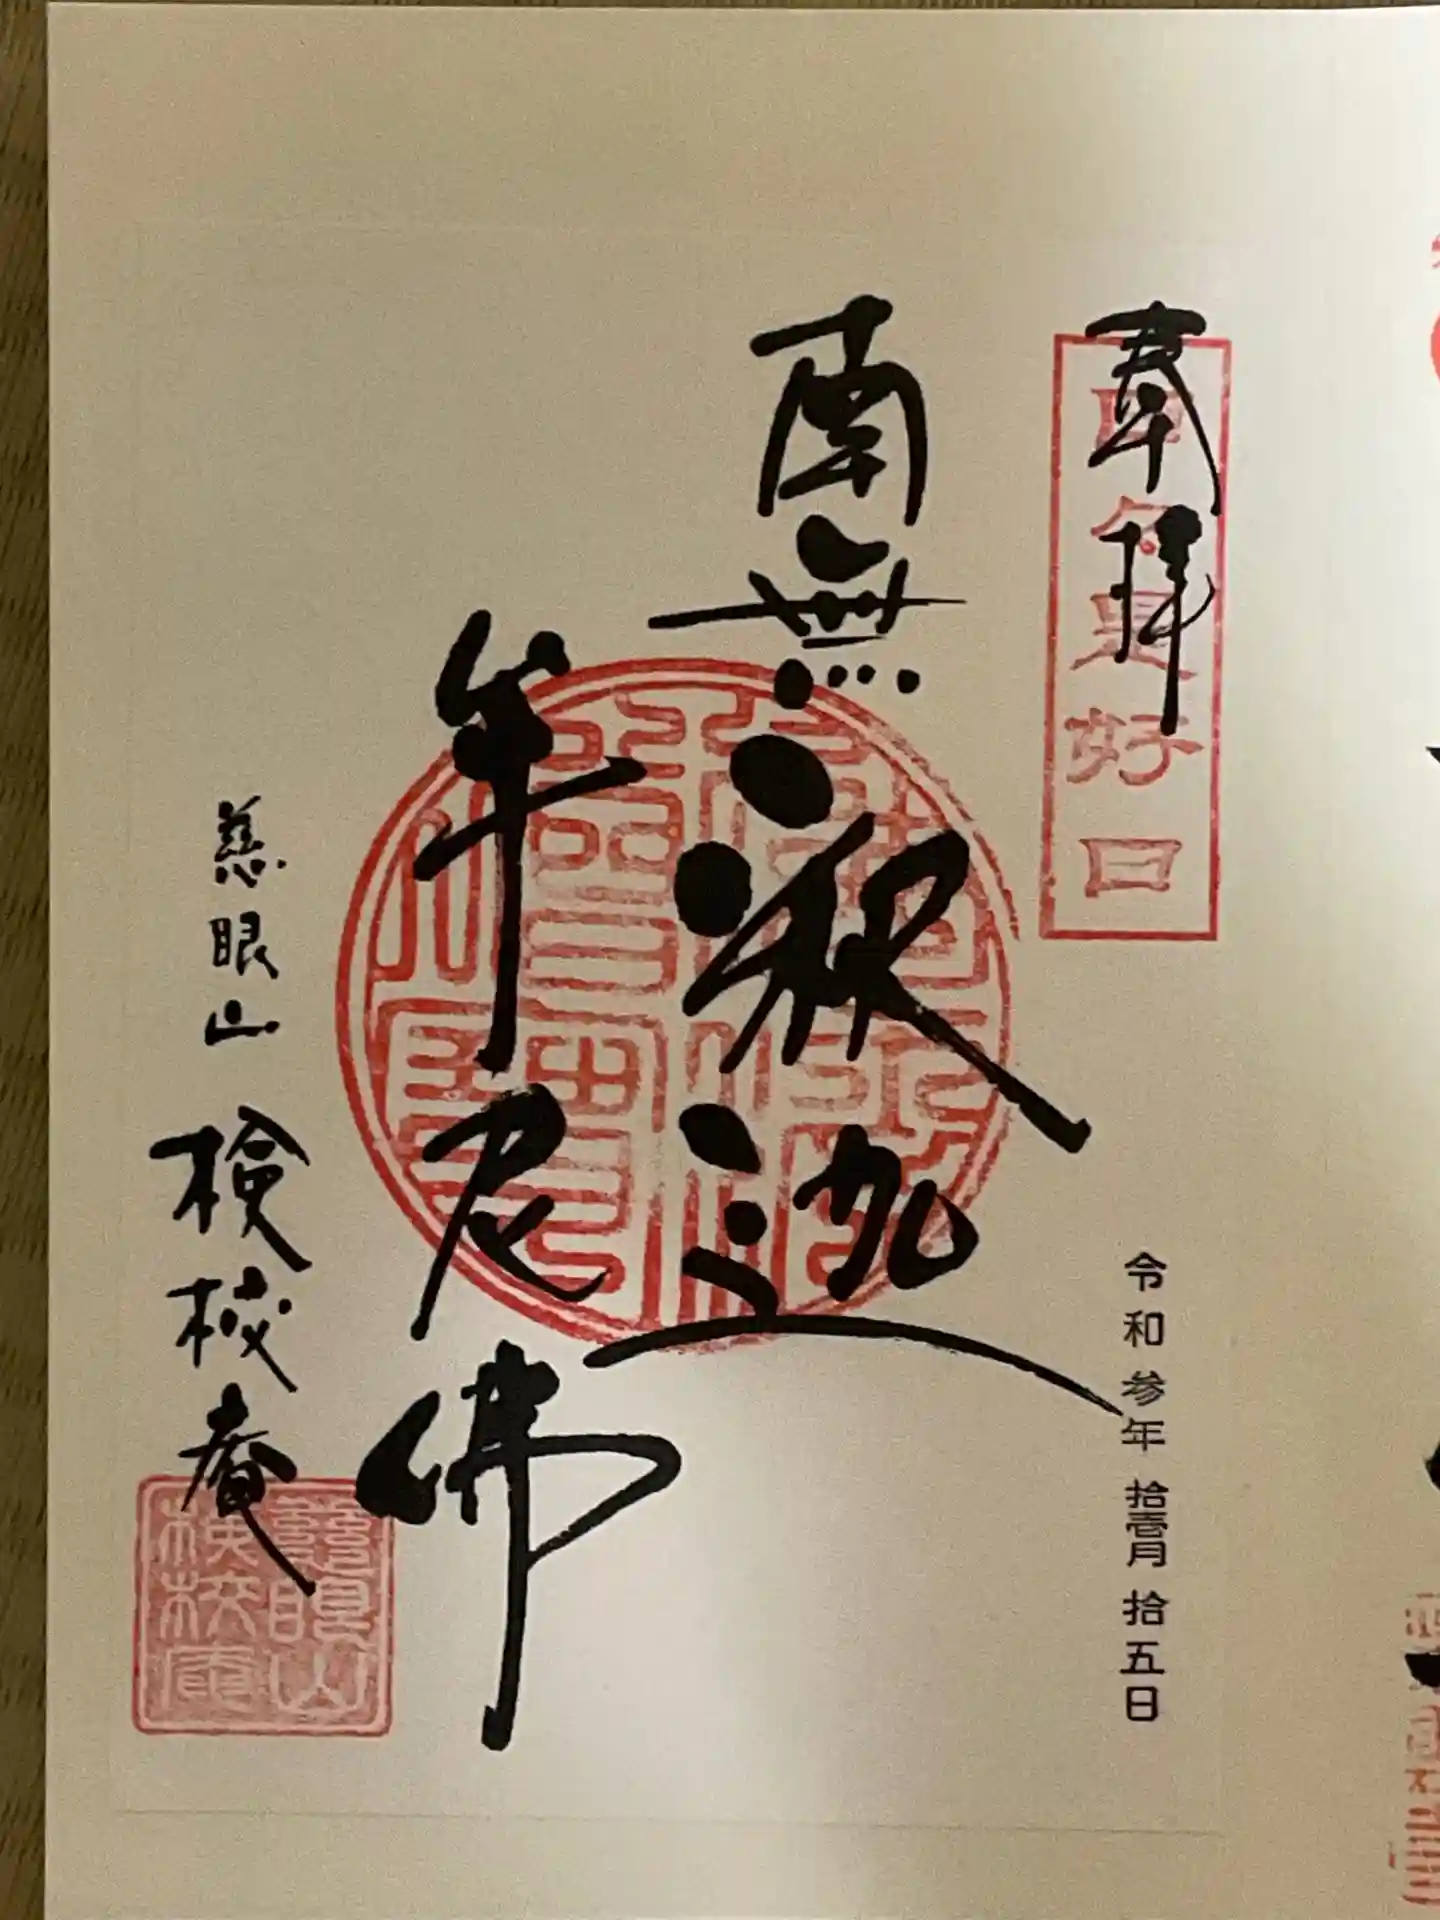 奉拝
日日是好日
令和参年拾壱月拾五日
南無釈迦
牟尼佛
慈眼山 検校庵
慈眼山
検校庵